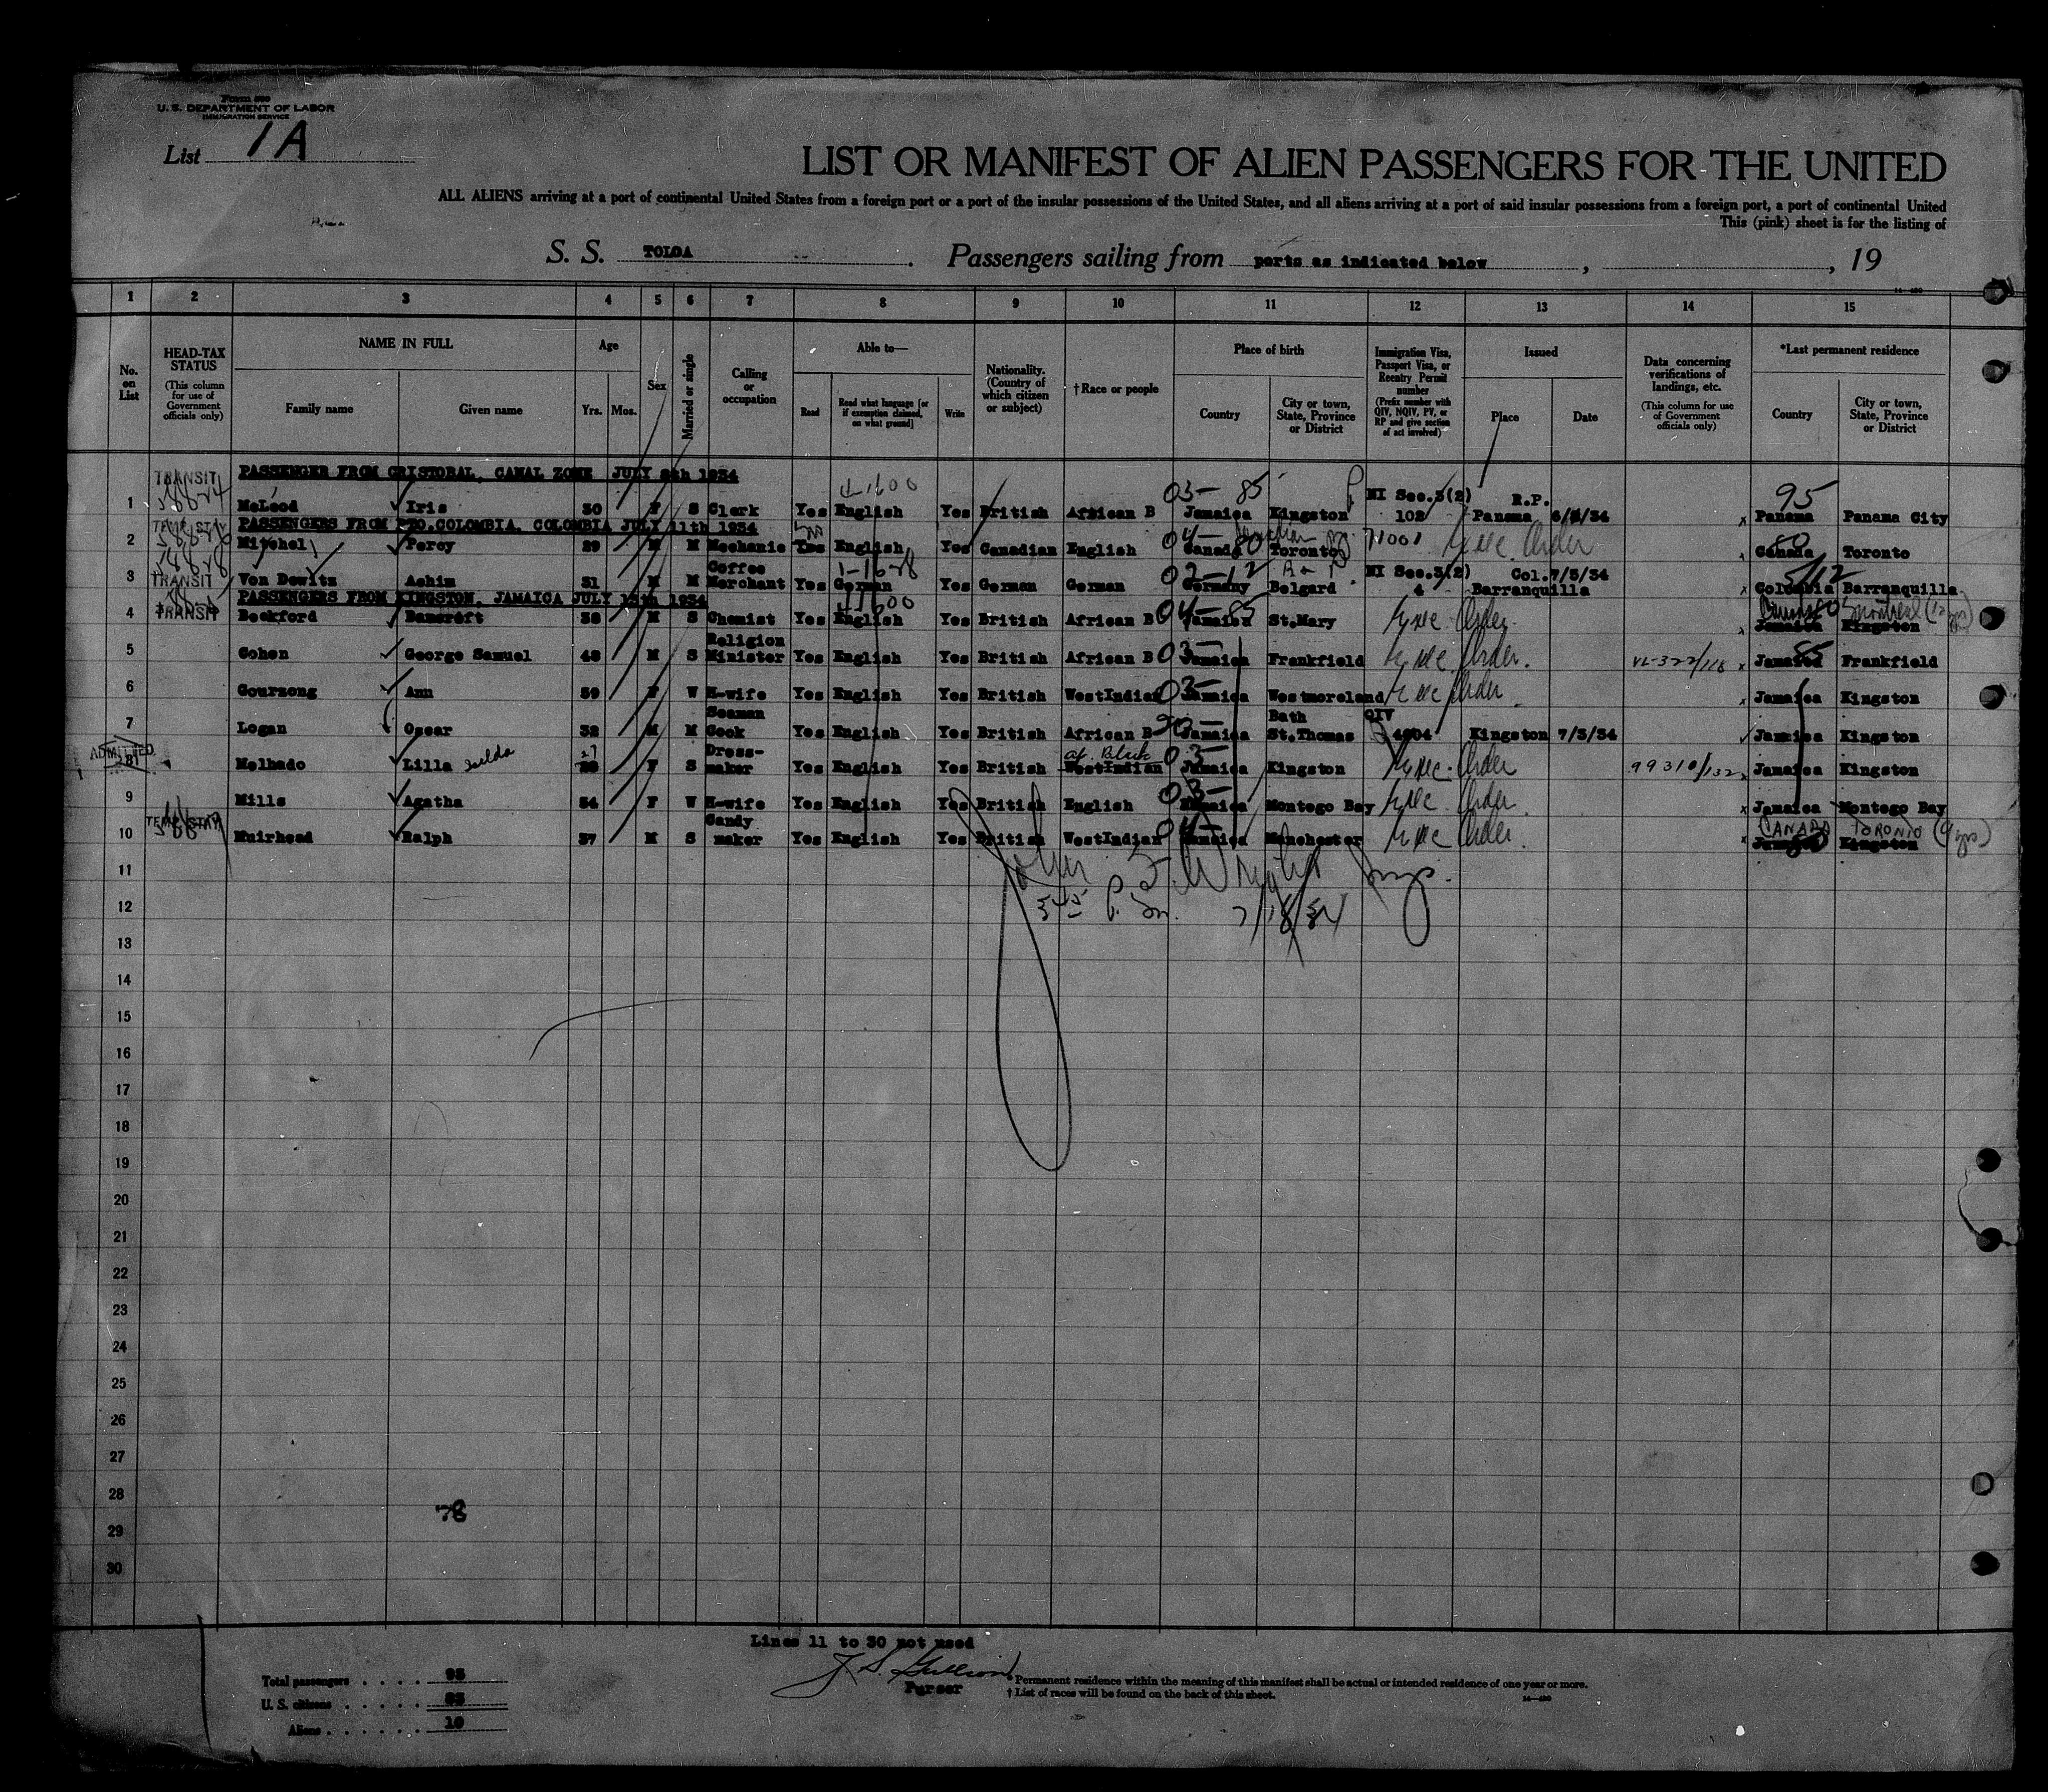 Form 500
U. S. DEPARTMENT OF LABOR
IMMIGRATION SERVICE
List 1A
LIST OR MANIFEST OF ALIEN PASSENGERS FOR THE UNITED
ALL ALIENS arriving at a port of continental United States from a foreign port or a port of the insular possessions of the United States, and all aliens arriving at a port of said insular possessions from a foreign port, a port of continental United
This (pink) sheet is for the listing of
S. S. TOLOA . Passengers sailing from ports as indicated below , , 19
1 2 3 4 5 6 7 8 9 10 11 12 13 14 15
No. on List
HEAD-TAX STATUS (This column for use of Government officials only)
NAME IN FULL Family name Given name
Age Yrs. Mos.
Sex
Married or single
Calling or occupation
Able to— Read Read what language [or if exemption claimed, on what ground] Write
Nationality. (Country of which citizen or subject)
† Race or people
Place of birth Country City or town, State, Province or District
Immigration Visa, Passport Visa, or Reentry Permit number (Prefix number with QIV, NQIV, PV, or RP and give section of act involved)
Issued Place Date
Data concerning verifications of landings, etc. (This column for use of Government officials only)
*Last permanent residence Country City or town, State, Province or District
TRANSIT PASSENGER FROM CRISTOBAL, CANAL ZONE JULY 8th 1934
1 McLeod Iris 30 F S Clerk Yes English Yes British African B 03- 85 Jamaica Kingston NI Sec.3(2) 102 R.P. Panama 6/ /34 95 Panama Panama City
TEMP STAY PASSENGERS FROM PTO.COLOMBIA, COLOMBIA JULY 11th 1934
2 Mitchel Percy 29 M M Mechanic Yes English Yes Canadian English 04- 80 Canada Toronto 71001 Exec Order 80 Canada Toronto
3 TRANSIT Von Dewitz Achim 31 M M Coffee Merchant Yes German Yes German German 02-12 Germany Belgard NI Sec.3(2) 4 Col. Barranquilla 7/3/34 Colombia Barranquilla
PASSENGERS FROM KINGSTON, JAMAICA JULY 13th 1934
4 TRANSIT Beckford Bancroft 38 M S Chemist Yes English Yes British African B 04-85 Jamaica St.Mary Exec Order Jamaica Kingston Montreal
5 Cohen George Samuel 48 M S Religion Minister Yes English Yes British African B 03- Jamaica Frankfield Exec Order. VL-322/118 85 Jamaica Frankfield
6 Gourzong Ann 59 F W H-wife Yes English Yes British WestIndian 03- Jamaica Westmoreland Exec Order. Jamaica Kingston
7 Logan Oscar 32 M M Seaman Cook Yes English Yes British African B Jamaica Bath St.Thomas QIV 4604 Kingston 7/3/34 Jamaica Kingston
ADMITTED Melhado Lilla Isilda 27 F S Dress-maker Yes English Yes British WestIndian Af. Black 03- Jamaica Kingston Exec. Order 99310/132 Jamaica Kingston
9 Mills Agatha 54 F W H-wife Yes English Yes British English 03- Jamaica Montego Bay Exec Order. Jamaica Montego Bay
10 TEMP STAY Muirhead Ralph 37 M S Candy maker Yes English Yes British WestIndian 04- Jamaica Manchester Exec Order. CANADA TORONTO Jamaica Kingston
11 John F. Wright Insp.
12 5 45 P.M. 7/18/34
13
14
15
16
17
18
19
20
21
22
23
24
25
26
27
28 78
29
30
Lines 11 to 30 not used
Total passengers . . . . 93
U. S. citizens . . . . . 83
Aliens . . . . . . 10
Purser
* Permanent residence within the meaning of this manifest shall be actual or intended residence of one year or more.
† List of races will be found on the back of this sheet.